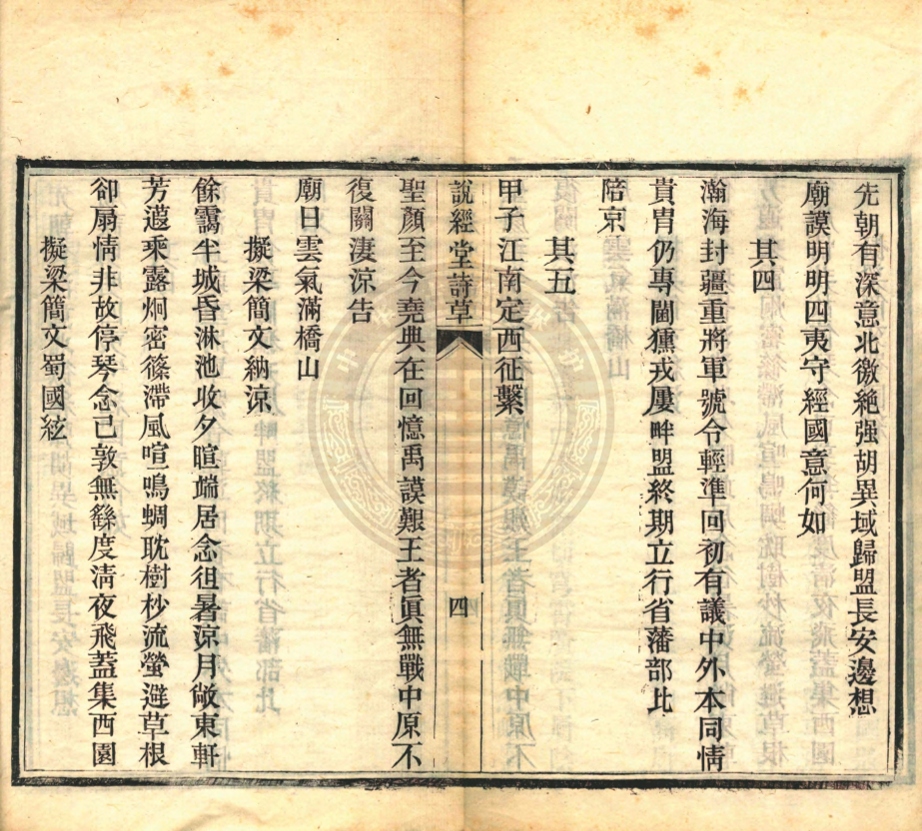 先朝有深意北徼絶强胡異域歸盟長安邊想
廟謨明明四夷守經國意何如
其四
瀚海封疆重將軍號令輕準回初有議中外本同情
貴胄仍專閫獯戎屢畔盟終期立行省藩部比
陪京
其五
甲子江南定西征繫
說經堂詩草
四
聖顏至今堯典在回憶禹謨艱王者眞無戰中原不
復關淒涼告
廟日雲氣滿橋山
擬梁簡文納涼
餘靄半城昏淋池收夕暄端居念徂暑涼月敞東軒
芳薳乘露炯密篠滯風喧一鳴蜩耽樹杪流螢避草根
卻扇情非故停琴念已敦無繇度淸夜飛蓋集西園
擬梁簡文蜀國絃